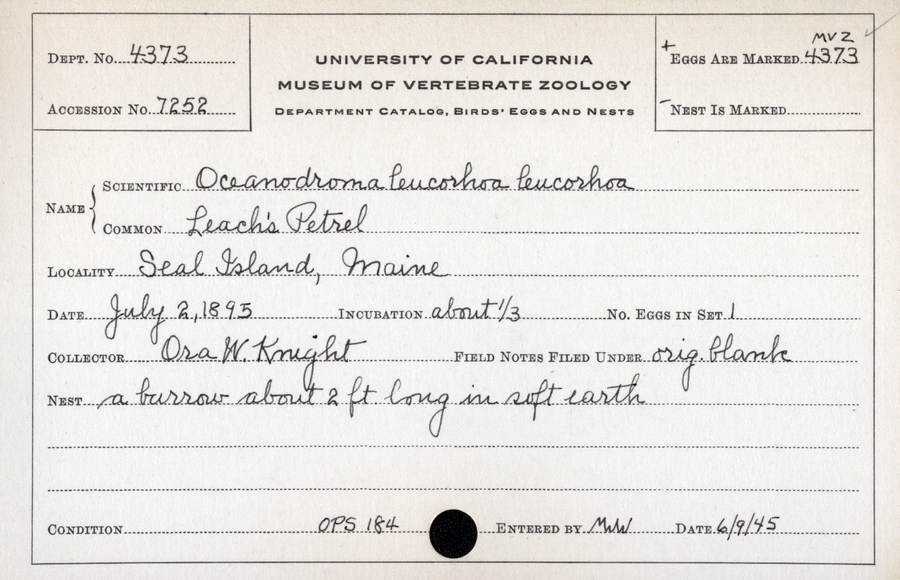 Dept. No. 4373
Accession No. 7252
UNIVERSITY OF CALIFORNIA
MUSEUM OF VERTEBRATE ZOOLOGY
Department Catalog, Birds' Eggs and Nests
MVZ
+ Eggs Are Marked 4373
- Nest Is Marked
Name { Scientific Oceanodroma leucorhoa leucorhoa
Common Leach's Petrel
Locality Seal Island, Maine
Date July 2, 1895 Incubation about 1/3 No. Eggs in Set 1
Collector Ora W. Knight Field Notes Filed Under orig. blank
Nest a burrow about 2 ft long in soft earth
Condition OPS 184 Entered by Date 6/9/45